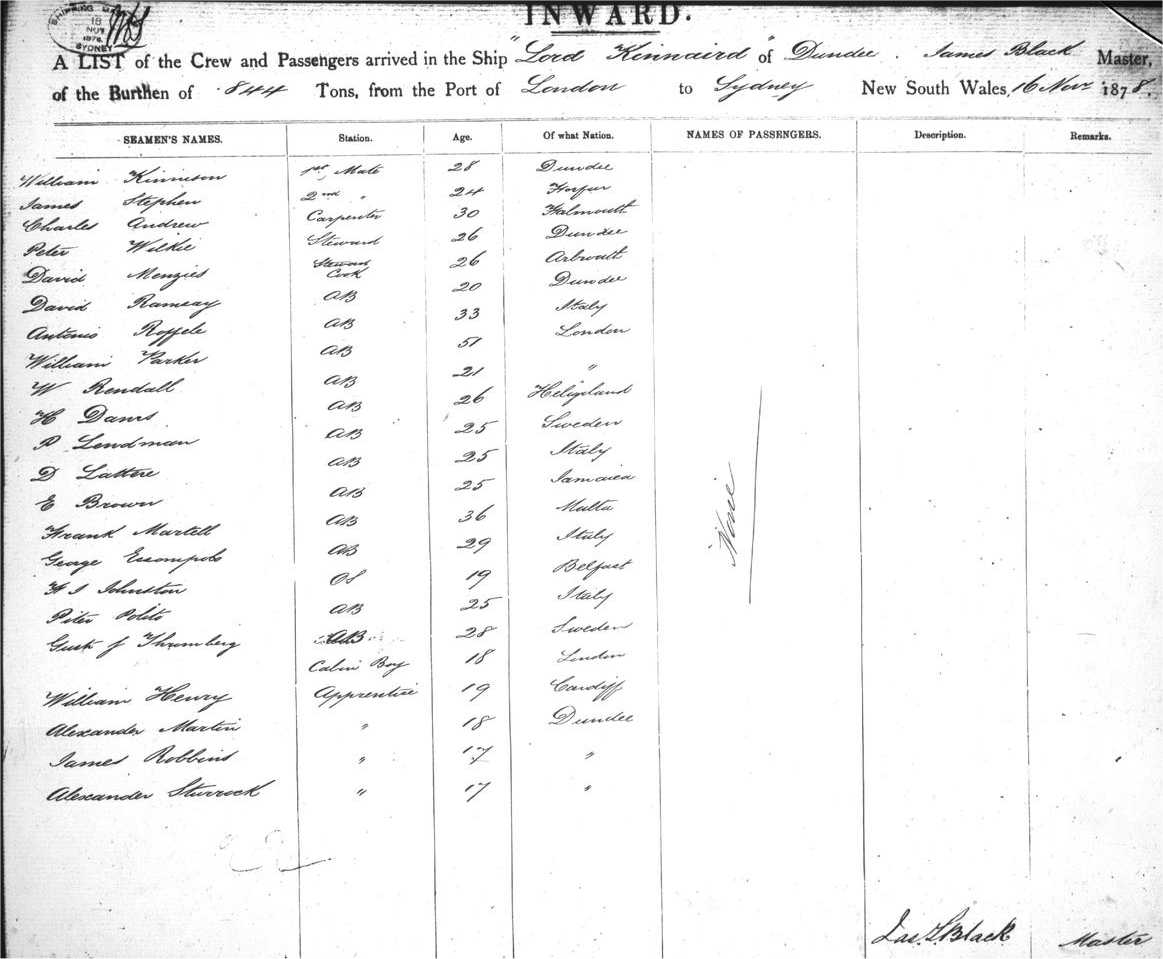 SHIPPING
18
NOV
1878
SYDNEY
INWARD.
A LIST of the Crew and Passengers arrived in the Ship "Lord Kinnaird" of Dundee. James Black Master,
of the Burthen of 844 Tons, from the Port of London to Sydney New South Wales, 16 Novr 1878.
SEAMEN'S NAMES. Station. Age. Of what Nation. NAMES OF PASSENGERS. Description. Remarks.
William Kinnieson 1st Mate 28 Dundee
James Stephen 2nd " 24 Forfar
Charles Andrew Carpenter 30 Falmouth
Peter Wilkie Steward 26 Dundee
David Menzies Steward Cook 26 Arbroath
David Ramsay AB 20 Dundee
Antonio Roffele AB 33 Italy
William Parker AB 51 London
W Rendall AB 21 "
H AB 26 Heligoland
P Lendman AB 25 Sweden
D Lattere AB 25 Italy
E Brown AB 25 Jamaica
Frank Martell AB 36 Malta
George AB 29 Italy
Johnston OS 19 Belfast
Piter Polito AB 25 Italy
Gust f Thromberg AB 28 Sweden
Cabin Boy 18 London
William Henry Apprentice 19 Cardiff
Alexander Martin " 18 Dundee
James Robbins " 17 "
Alexander Sturrock " 17 "
None
Jas S Black Master